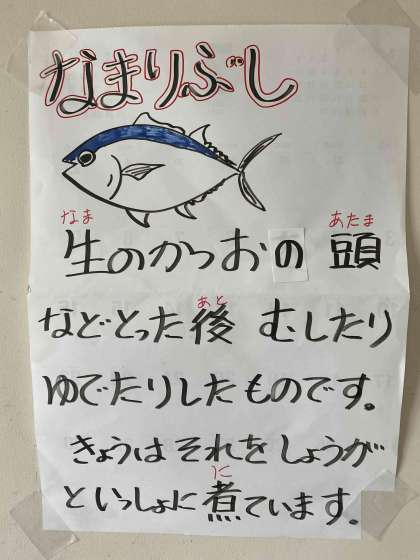 なまりぶし
なま
あたま
生のかつおの 頭
あと
などとった後 むしたり
ゆでたりしたものです。
きょうは それを しょうが
に
といっしょに煮ています。